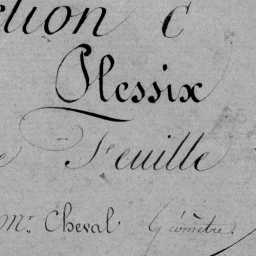 ction C
Plessix
Feuille
Mr. Cheval Géomètre